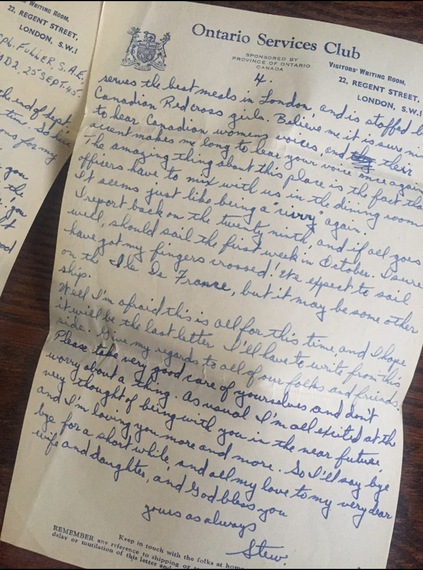 WRITING ROOM.
22, REGENT STREET,
LONDON, S.W.1
CPL. FULLER, S.A.E.
25 SEPT. 45.
the end of Sept.
Ontario Services Club
SPONSORED BY
PROVINCE OF ONTARIO
CANADA
VISITORS' WRITING ROOM.
22, REGENT STREET,
LONDON, S.W.1
4.
serves the best meals in London, and is staffed b
Canadian Red cross girls. Believe me it is sure ni
to hear Canadian womens voices, and their
accent makes me long to hear your voice once again
The amazing thing about this place is the fact tha
officers have to mix with us in the dining room
It seems just like being a "civvy" again.
I report back on the twenty ninth, and if all goes
well, should sail the first week in October. I sure
have got my fingers crossed! We expect to sail
on the Ile De France, but it may be some other
ship.
Well I'm afraid this is all for this time, and I hope
it will be the last letter I'll have to write from this
side. Give my regards to all of our folks and friends.
Please take very good care of yourselves and don't
worry about a thing. As usual I'm all exited at the
very thought of being with you in the near future,
and I'm loving you more and more. So I'll say bye
bye for a short while, and all my love to my very dear
wife and daughter, and God bless you
yours as always
Stew.
Keep in touch with the folks at hom
REMEMBER any reference to shipping or
delay or mutilation of this letter and